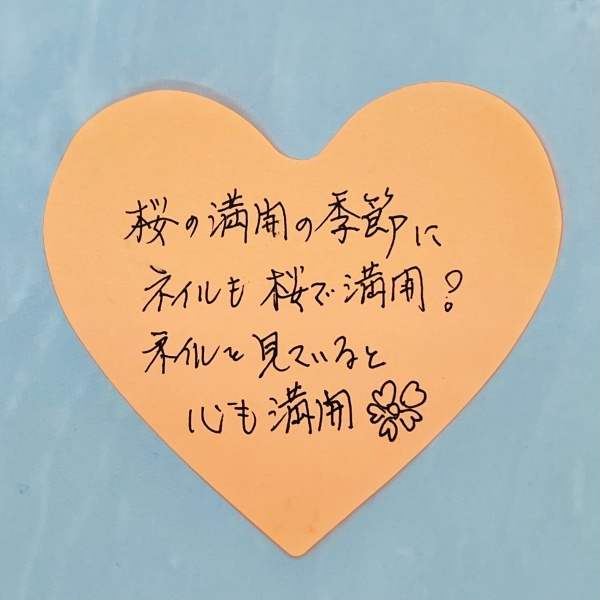 桜の満開の季節に
ネイルも桜で満開?
ネイルを見ていると
心も満開